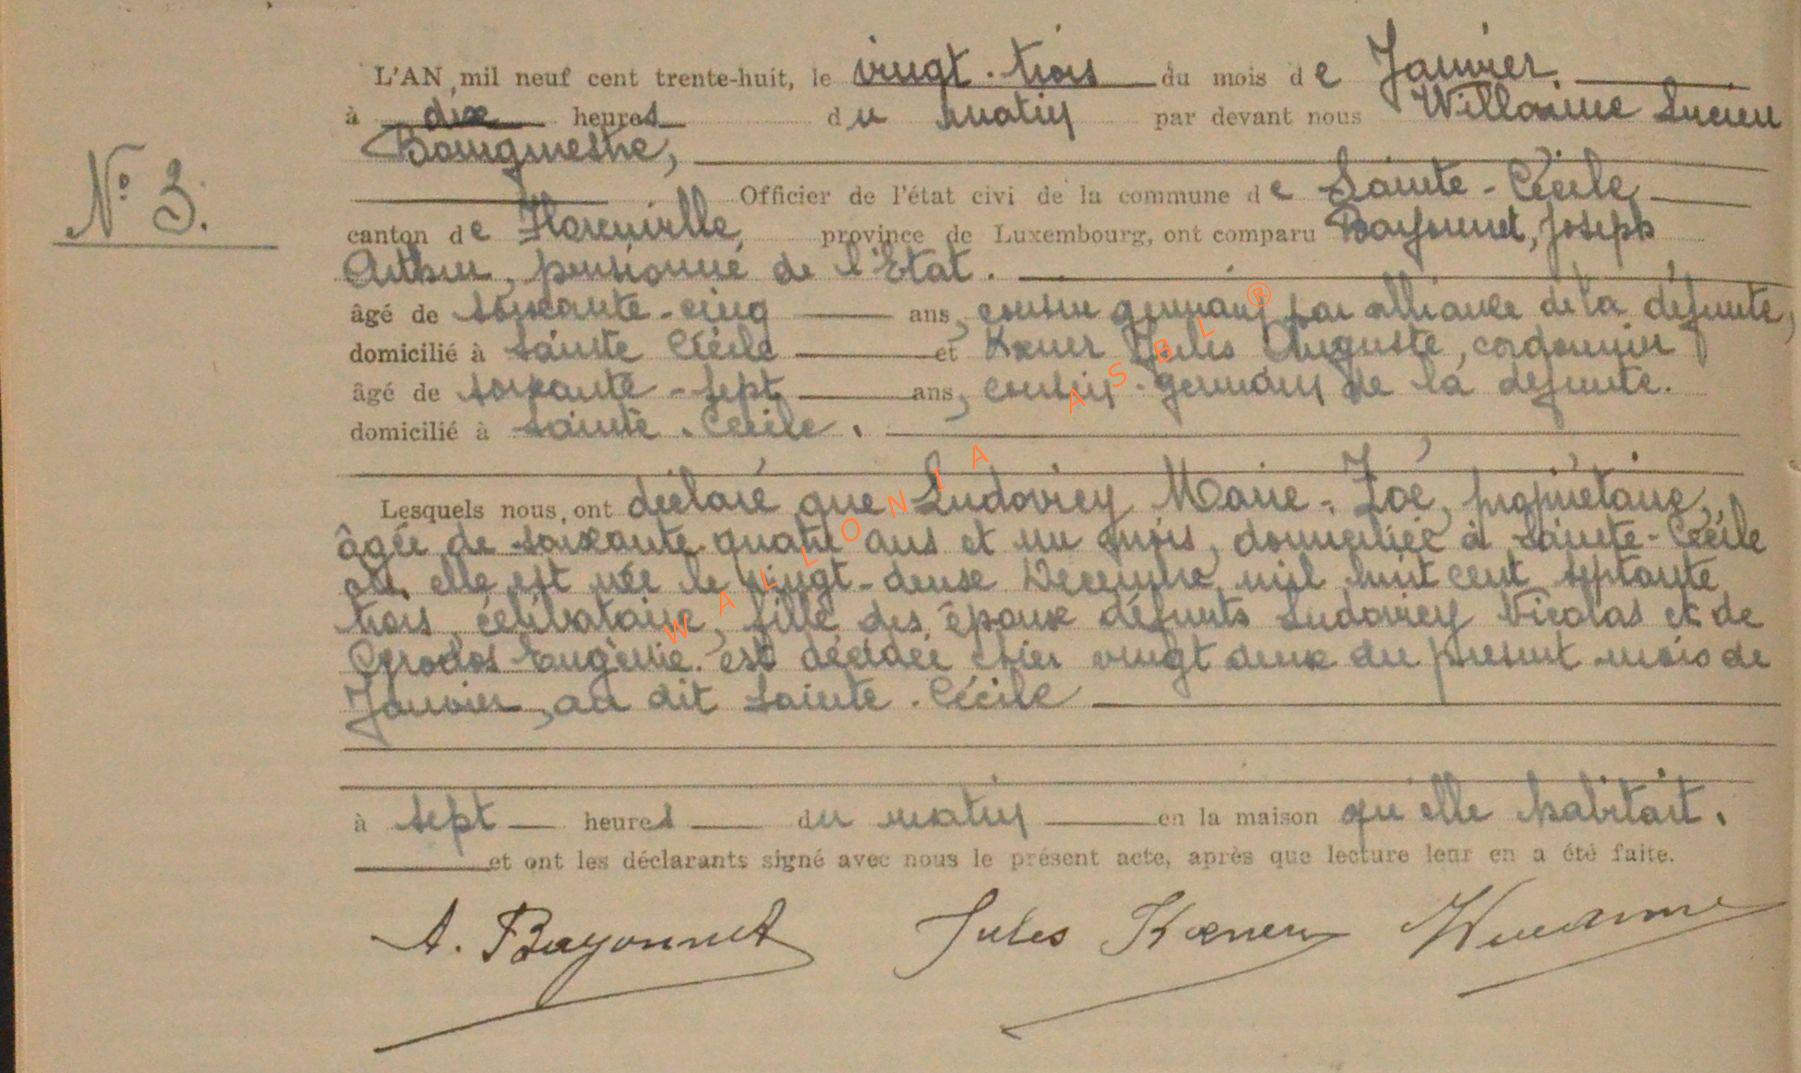 L'AN mil neuf cent trente-huit, le vingt-trois du mois de Janvier.
à dix heures du matin par devant nous Willaime Lucien
Bourgmestre,
N° 3.
Officier de l'état civi de la commune de Sainte-Cécile
canton de Florenville, province de Luxembourg, ont comparu Bayonnet, Joseph
Arthur, pensionné de l'Etat.
âgé de soixante-cinq ans, cousin germain par alliance de la défunte,
domicilié à Sainte Cécile et Kæner Jules Auguste, cordonnier
âgé de soixante-sept ans, cousin-germain de la défunte.
domicilié à Sainte-Cécile.
Lesquels nous ont déclaré que Ludovicy Marie-Zoé, propriétaire,
âgée de soixante quatre ans et un mois, domiciliée à Sainte-Cécile
où elle est née le vingt-deux Décembre mil huit cent septante
trois, célibataire, fille des époux défunts Ludovicy Nicolas et de
Eugénie. est décédée hier vingt deux du présent mois de
Janvier, au dit Sainte-Cécile
à sept heures du matin en la maison qu'elle habitait.
et ont les déclarants signé avec nous le présent acte, après que lecture leur en a été faite.
A. Bayonnet Jules Kæner Willaime
WALLONIA ASBL ®